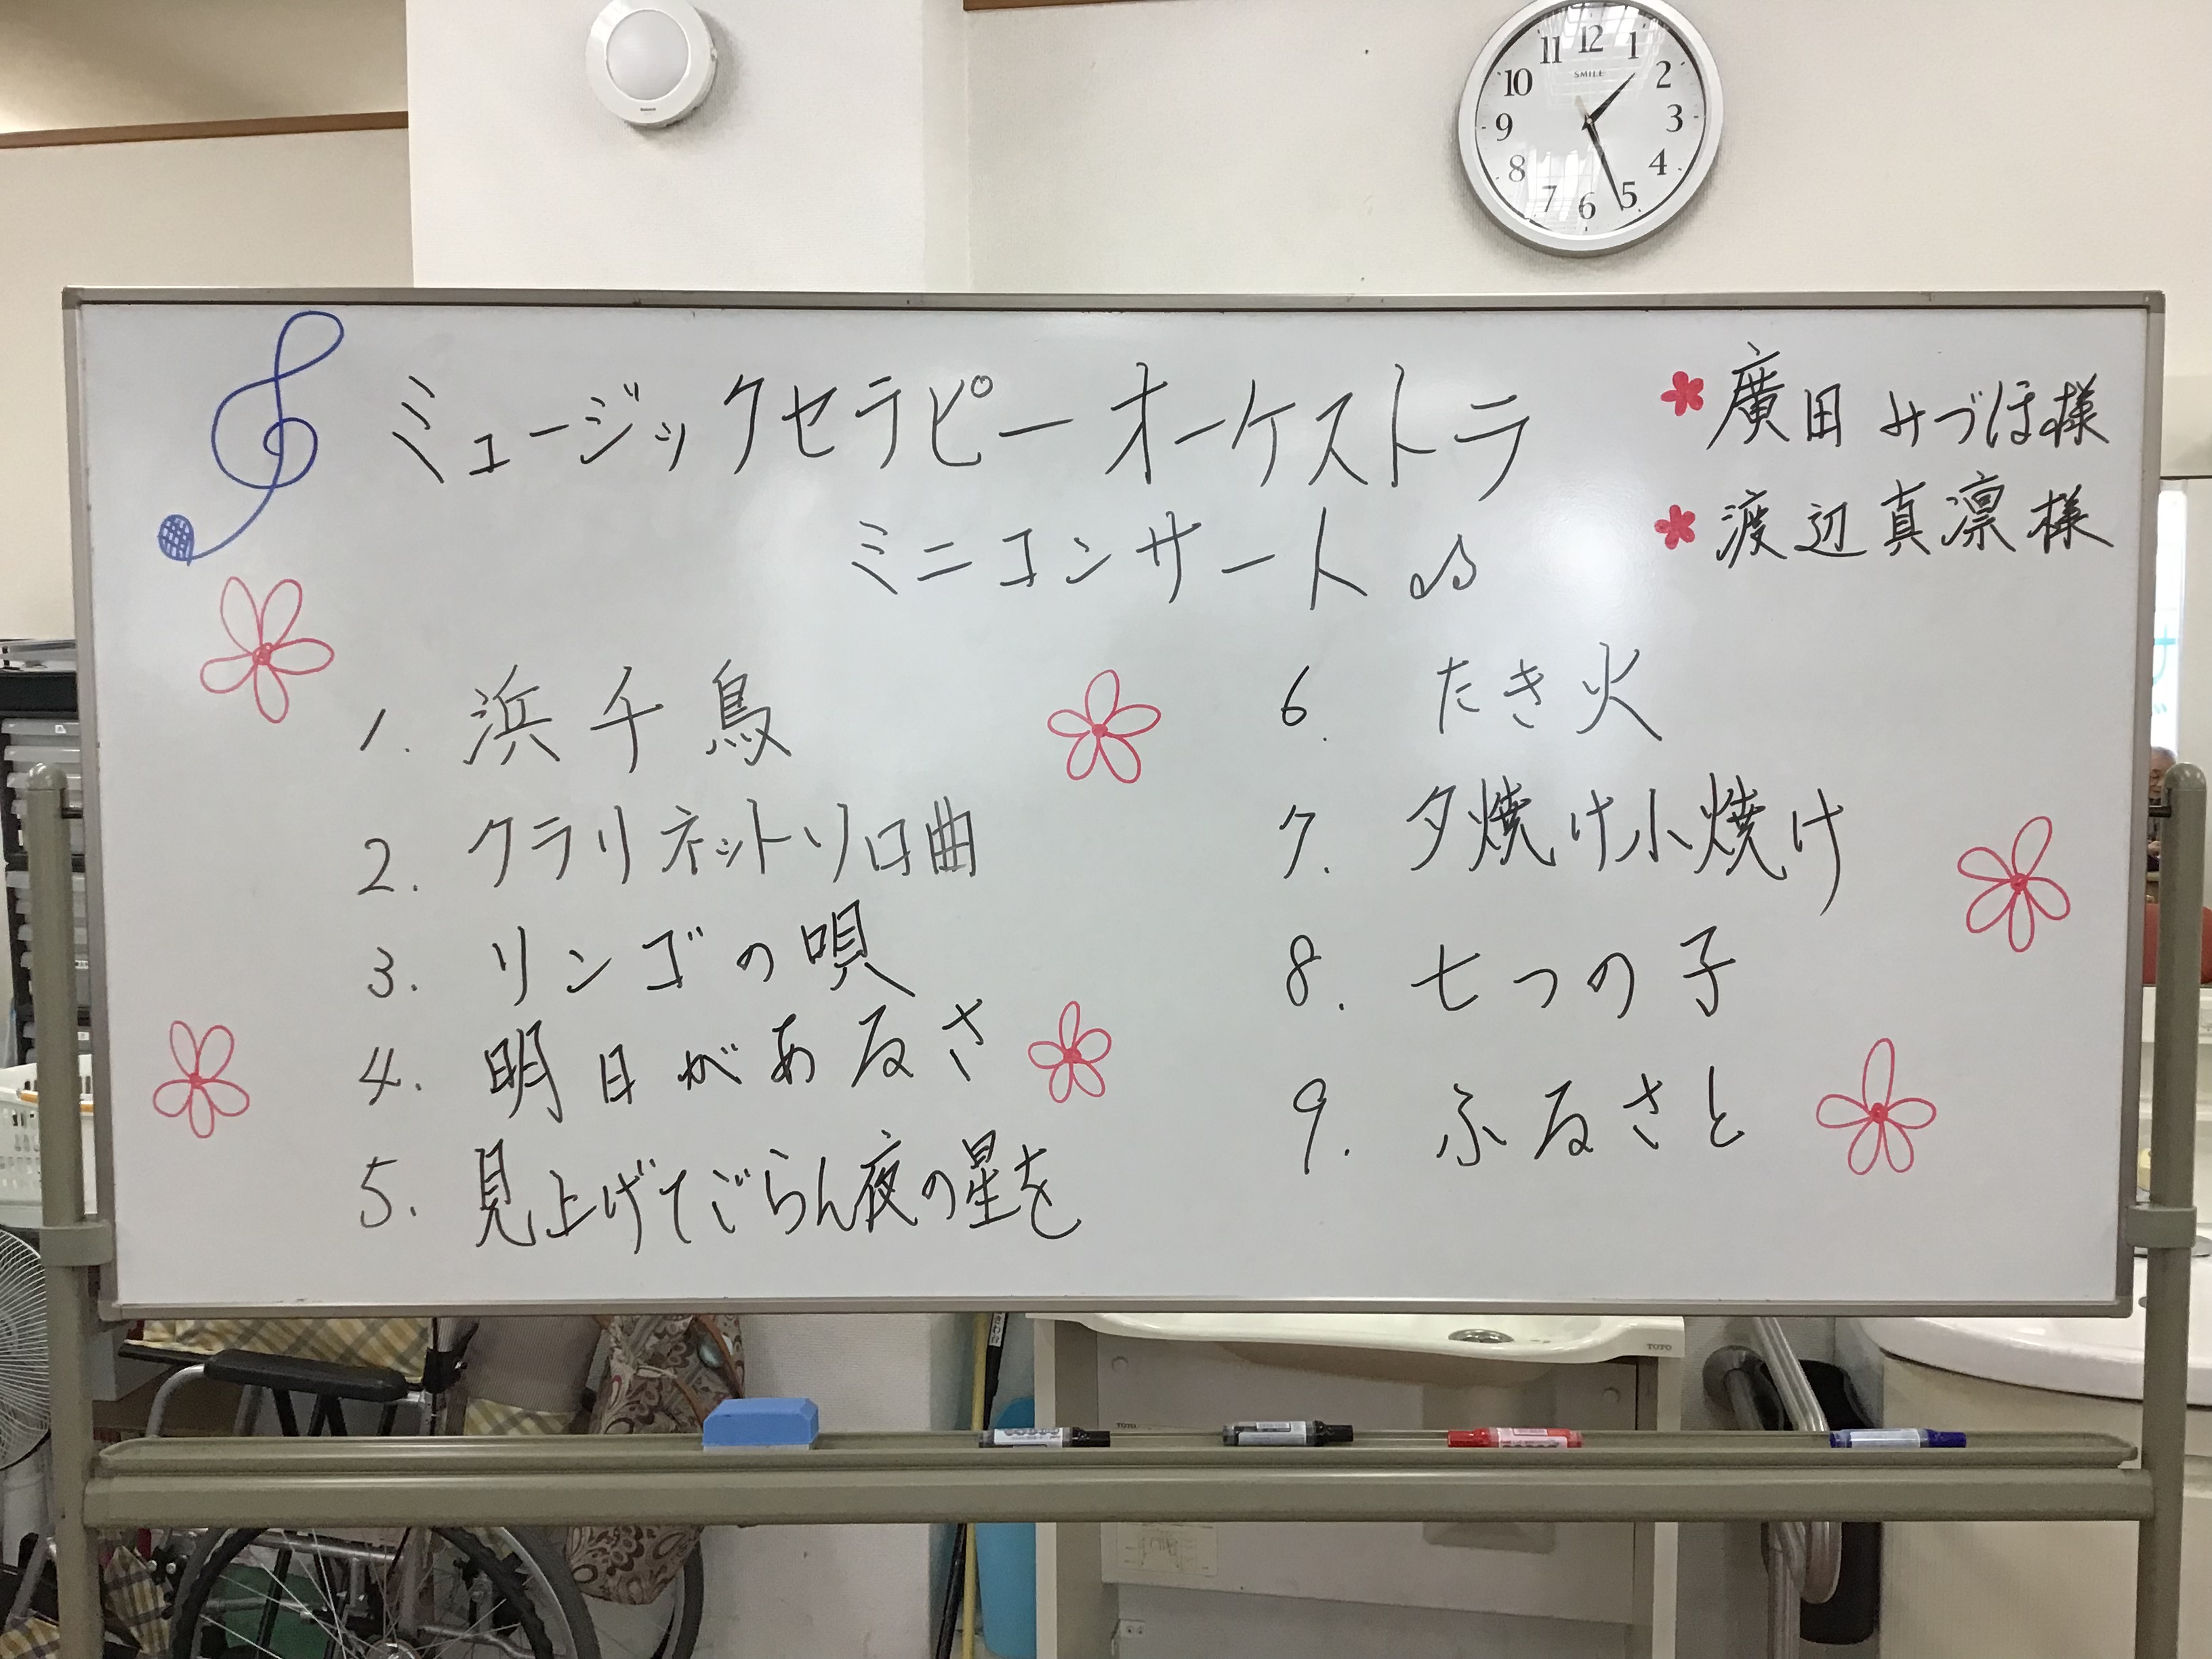 12
11
1
10
2
SMILE
9
3
8
4
7
5
6
ミュージックセラピーオーケストラ
ミニコンサート♫
廣田みづほ様
渡辺真凛様
1. 浜千鳥
2. クラリネットソロ曲
3. リンゴの唄
4. 明日があるさ
5. 見上げてごらん夜の星を
6. たき火
7. 夕焼け小焼け
8. 七つの子
9. ふるさと
TOTO
TOTO